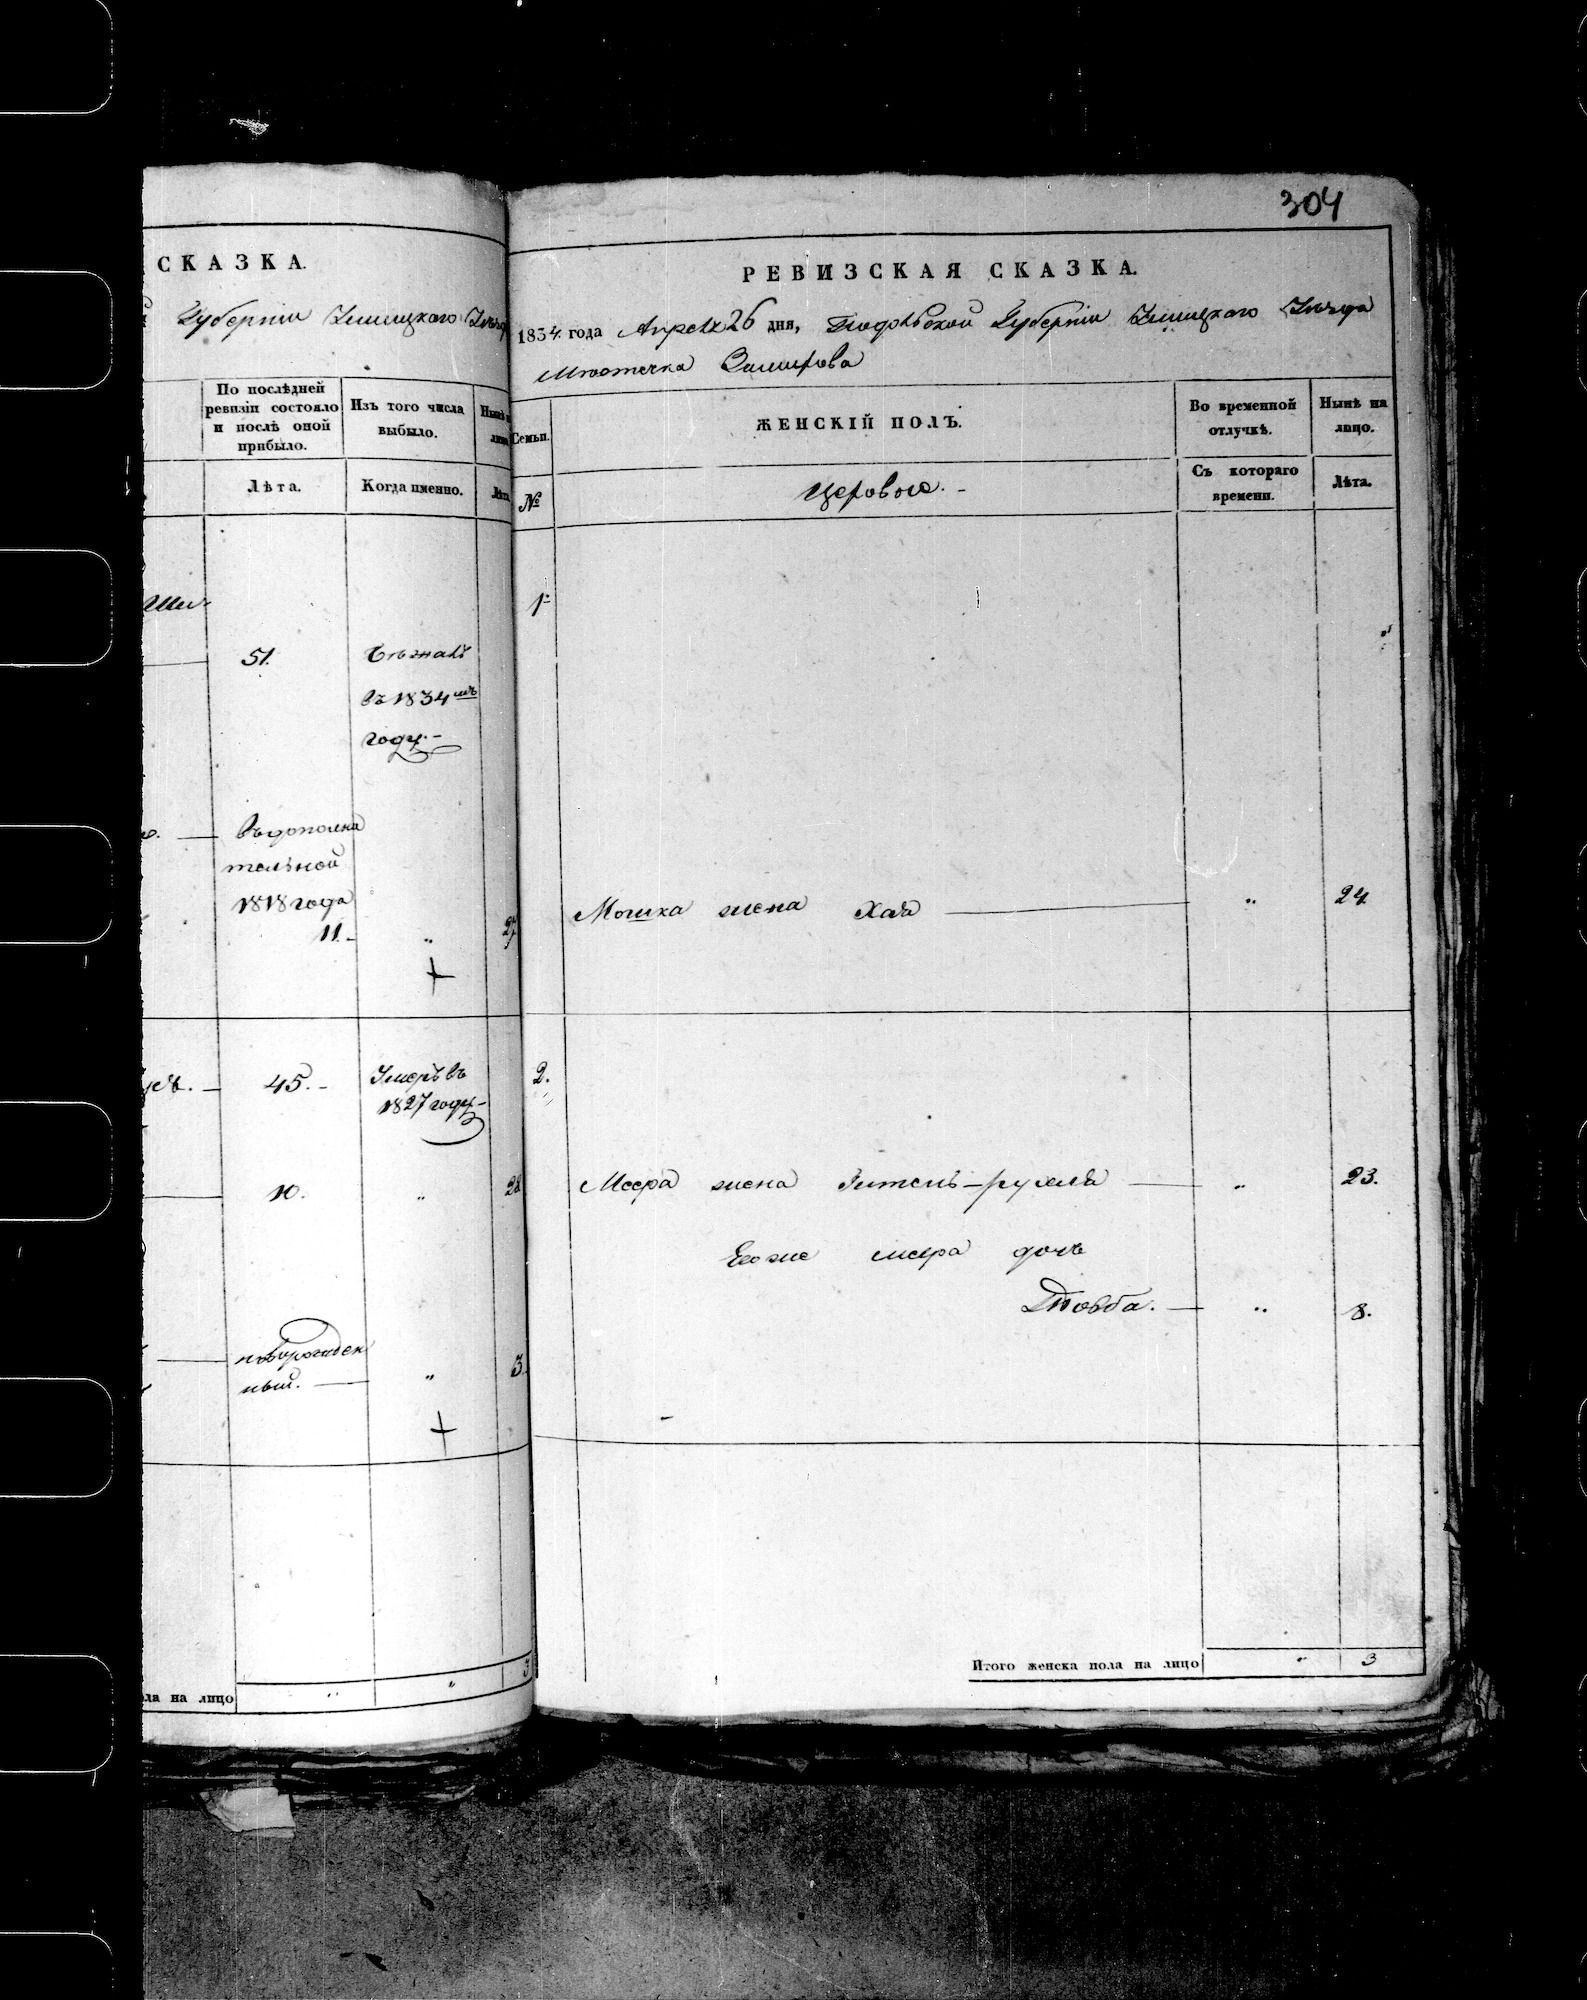 304
СКАЗКА.
Губерніи Ушицкаго Уѣзда
По послѣдней
ревизіи состояло
и послѣ оной
прибыло.
Изъ того числа
выбыло.
Нынѣ
Лѣта.
Когда именно.
Лѣта
51.
бѣжалъ
въ 1834мъ
году.-
въ дополни
тельной
1818 года
11.-
„
27
45.-
Умеръ въ
1827 году-
10.
„
28
новорожден
ный.
„
3.
на лицо
„
„
3
РЕВИЗСКАЯ СКАЗКА.
1834. года Апреля 26 дня, Подольской Губерніи Ушицкаго Уѣзда
Мѣстечка
Семьи.
ЖЕНСКІЙ ПОЛЪ.
Во временной
отлучкѣ.
Нынѣ на
лицо.
№
Съ котораго
времени.
Лѣта.
1.
Мошка жена Хая „ 24
2.
Меера жена Гитель-рухля „ 23.
Его же меера дочь
Товба. „ 8.
Итого женска пола на лицо „ 3